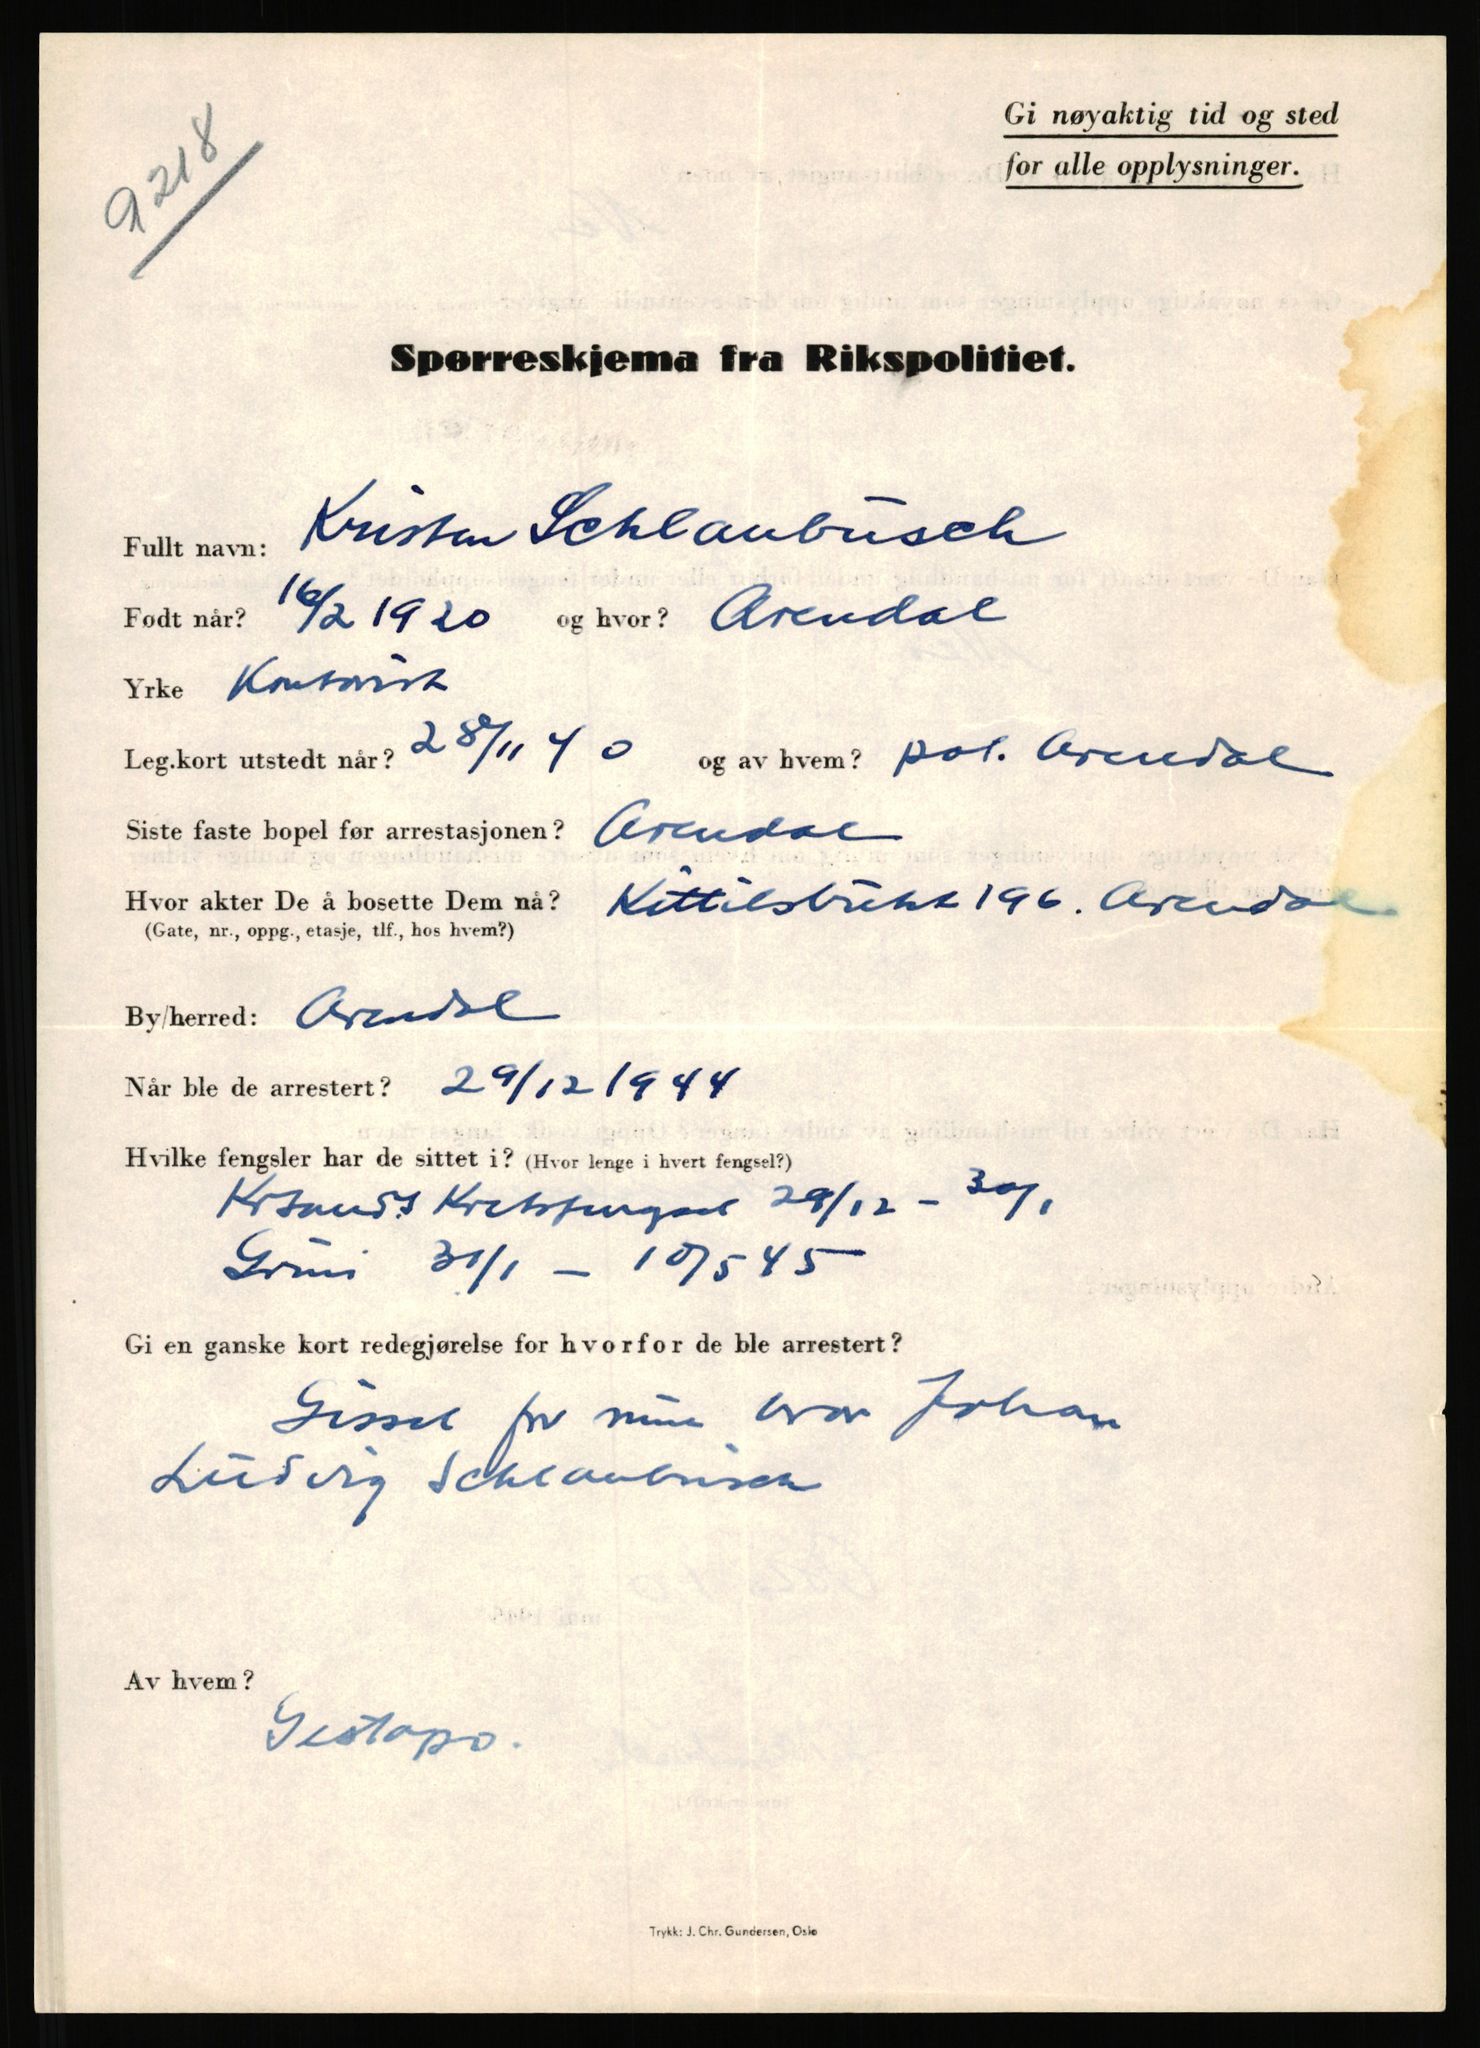 9218
Gi nøyaktig tid og sted
for alle opplysninger.
Spørreskjema fra Rikspolitiet.
Fullt navn: Kristen Schlanbusch
Født når? 16/2 1920 og hvor? Arendal
Yrke Kontorist
Leg.kort utstedt når? 28/11 40 og av hvem? pol. Arendal
Siste faste bopel før arrestasjonen? Arendal
Hvor akter De å bosette Dem nå? 196. Arendal
(Gate, nr., oppg., etasje, tlf., hos hvem?)
By/herred: Arendal
Når ble de arrestert? 29/12 1944
Hvilke fengsler har de sittet i? (Hvor lenge i hvert fengsel?)
Krsands Kretsfengsel 29/12 – 30/1
Grini 31/1 – 10/5 45
Gi en ganske kort redegjørelse for hvorfor de ble arrestert?
Gissel for min bror Johan
Ludvig Schlanbusch
Av hvem?
Gestapo.
Trykk: J. Chr. Gundersen, Oslo